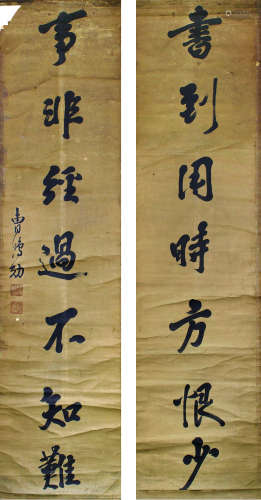 書到用時方恨少
事非經過不知難
曹鴻勛